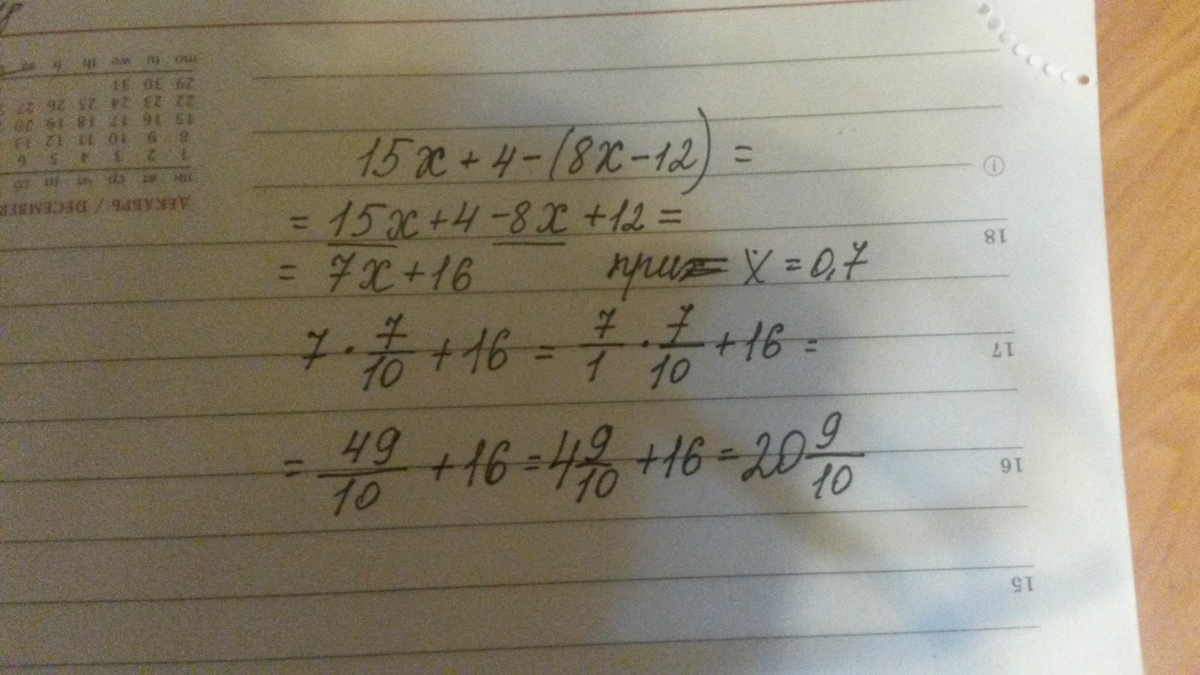 15x + 4 - (8x - 12) =
= 15x + 4 - 8x + 12 =
= 7x + 16 при x = 0,7
7 · 7/10 + 16 = 7/1 · 7/10 + 16 =
= 49/10 + 16 = 4 9/10 + 16 = 20 9/10
ДЕКАБРЬ / DECEMBER
пн вт ср чт пт сб
1 2 3 4 5 6
8 9 10 11 12 13
15 16 17 18 19 20
22 23 24 25 26 27
29 30 31
mo tu we th fr sa
15
16
17
18